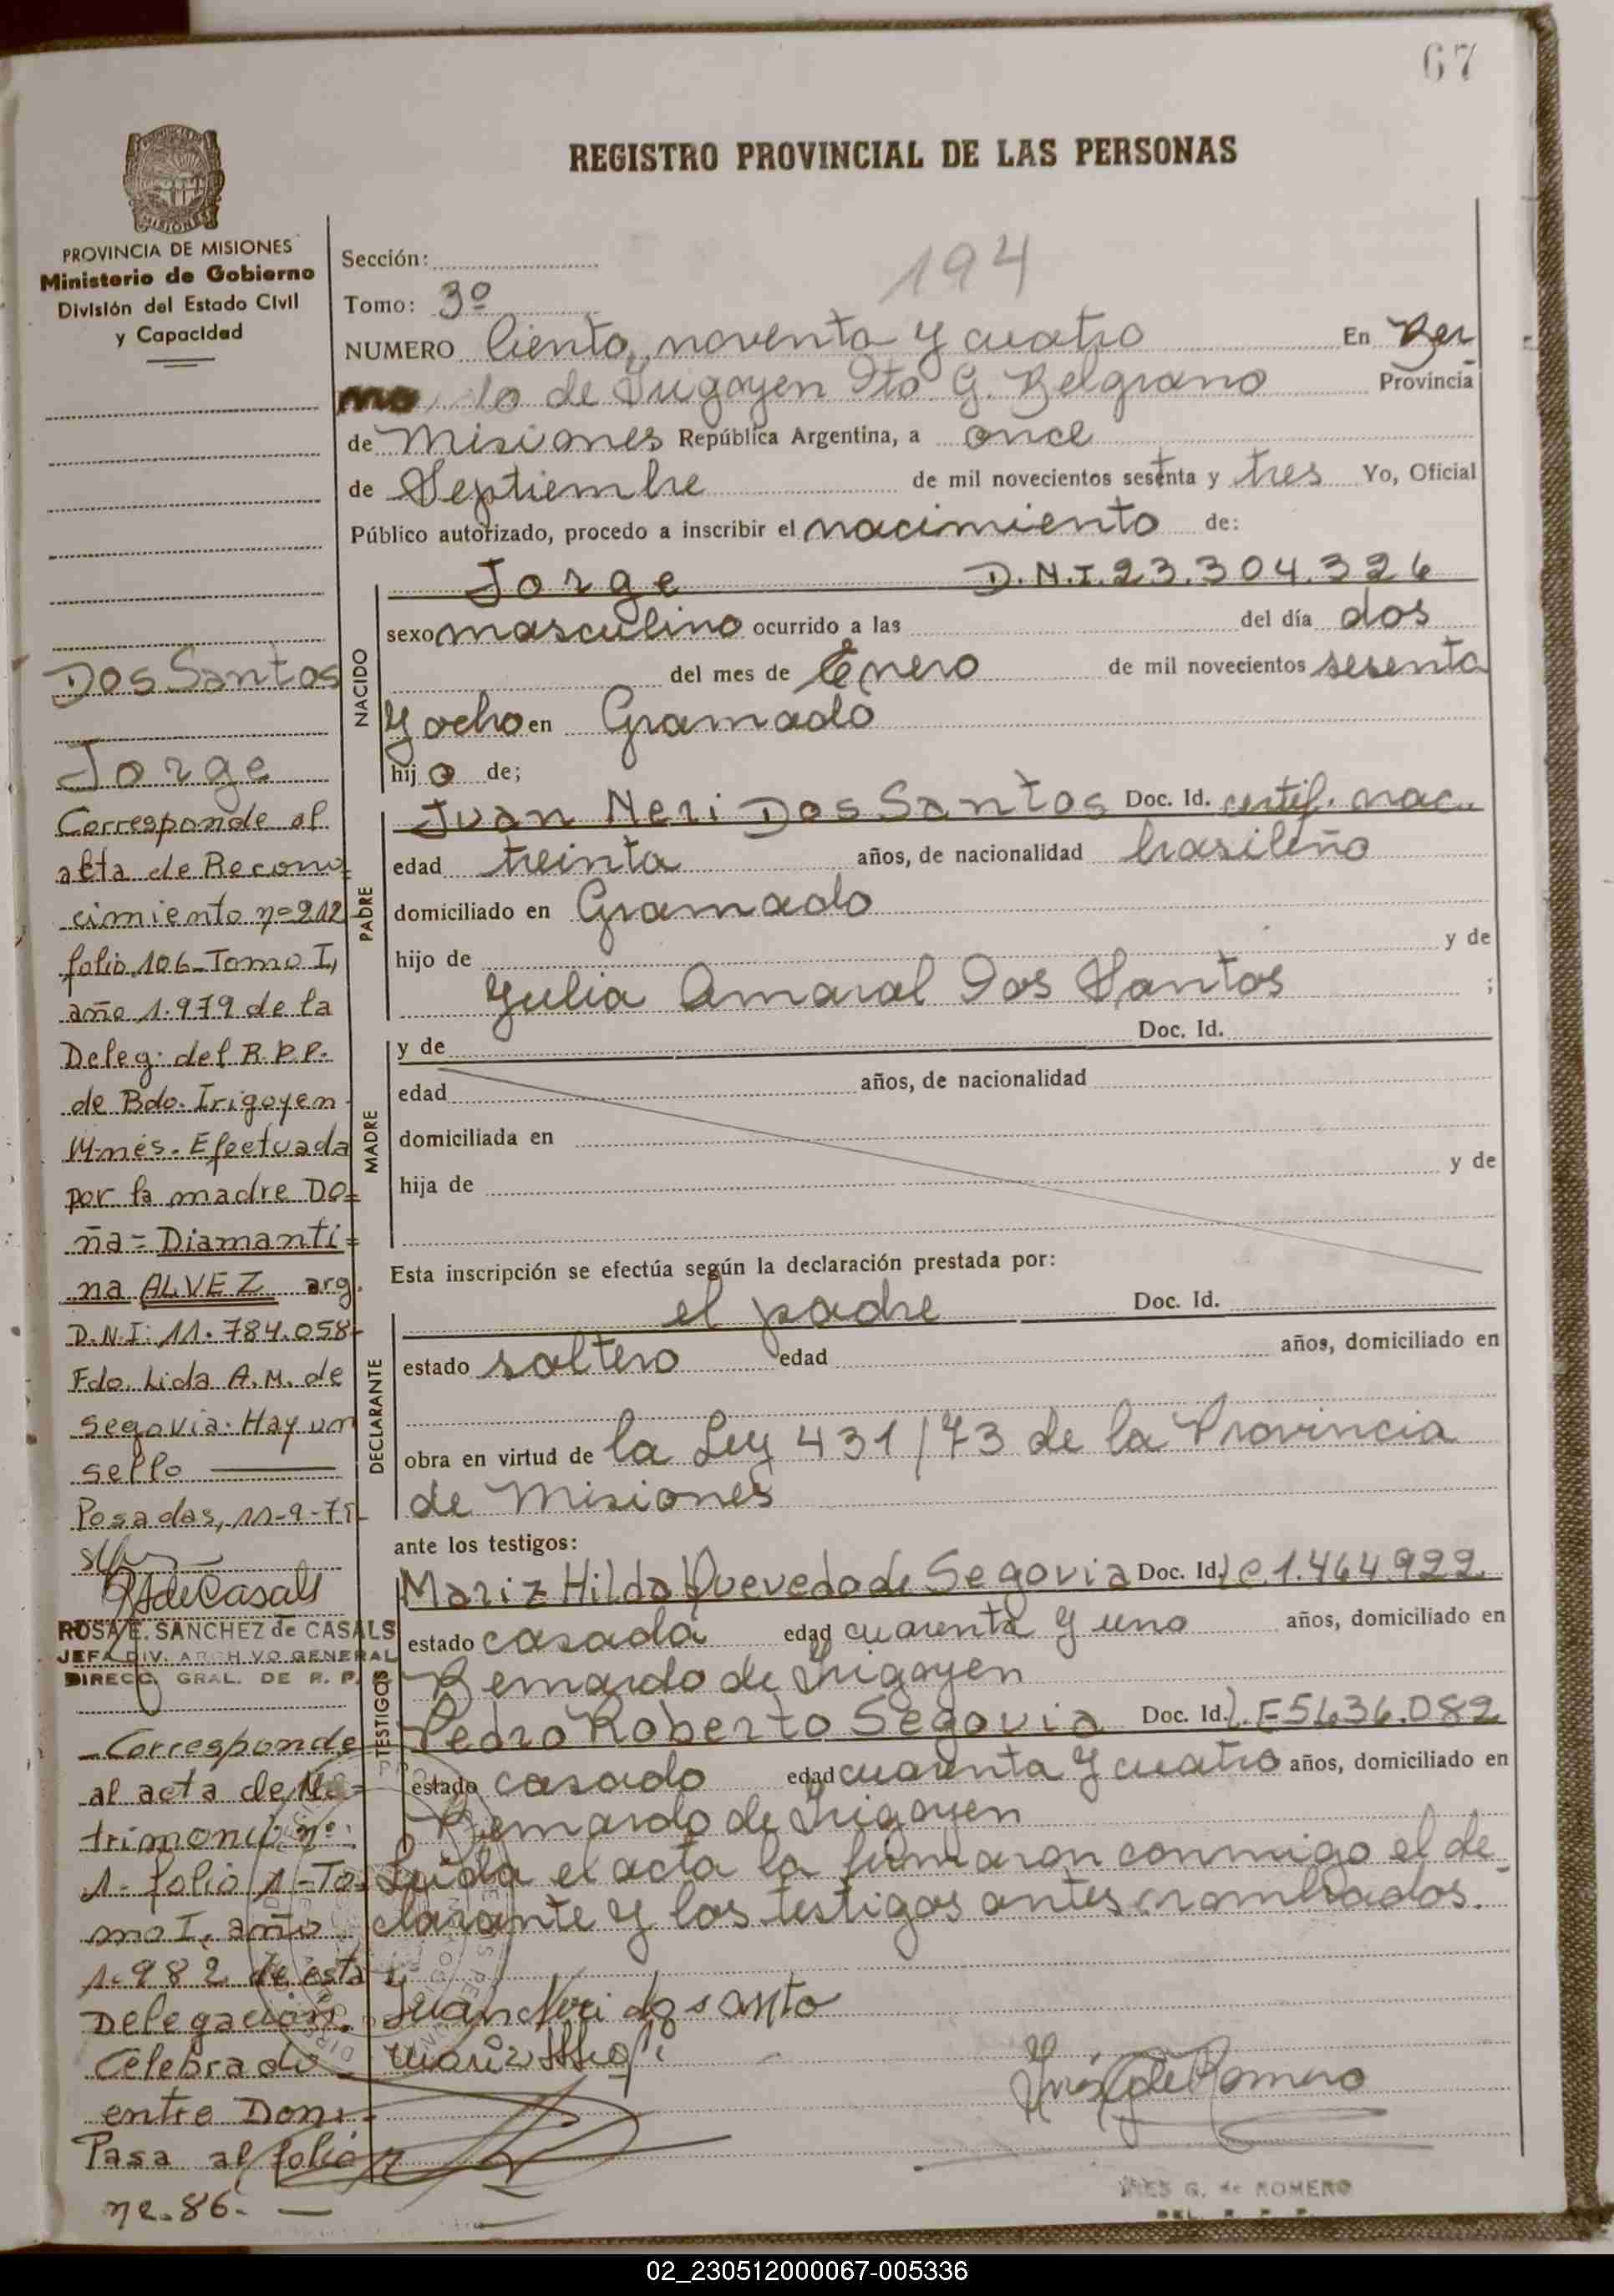 67
REGISTRO PROVINCIAL DE LAS PERSONAS
PROVINCIA DE MISIONES
Ministerio de Gobierno
División del Estado Civil
y Capacidad
Dos Santos
Jorge
Corresponde al
acta de Recono=
cimiento nº=212
folio.106-Tomo I,
año 1.979 de la
Deleg. del R.P.P.
de Bdo. Irigoyen
M-nes. Efectuada
por la madre Do=
ña= Diamanti=
na ALVEZ arg.
D.N.I: 11.784.058-
Fdo. Lida A.M. de
Segovia. Hay un
sello
Posadas, 11-9-79
RSdeCasals
ROSA E. SANCHEZ de CASALS
JEFA DIV. ARCHIVO GENERAL
DIRECC. GRAL. DE R. P.
Corresponde
al acta de Ma=
trimonio nº:
1- folio 1-To=
mo I, año
1.982 de esta
Delegación.
Celebrado
entre Don:-
Pasa al folio
nº.86.
Sección:
194
Tomo: 3º
NUMERO Ciento noventa y cuatro En Ber
nardo de Irigoyen Dto G. Belgrano Provincia
de Misiones República Argentina, a once
de Septiembre de mil novecientos setenta y tres Yo, Oficial
Público autorizado, procedo a inscribir el nacimiento de:
NACIDO
Jorge D.N.I.23.304.326
sexo masculino ocurrido a las del día dos
del mes de Enero de mil novecientos sesenta
y ocho en Gramado
hijo de;
PADRE
Juan Neri Dos Santos Doc. Id. certif. nac.
edad treinta años, de nacionalidad brasileño
domiciliado en Gramado
hijo de y de
Julia Amaral Dos Santos ;
MADRE
y de Doc. Id.
edad años, de nacionalidad
domiciliada en
hija de y de
Esta inscripción se efectúa según la declaración prestada por:
DECLARANTE
el padre Doc. Id.
estado soltero edad años, domiciliado en
obra en virtud de la Ley 431/73 de la Provincia
de Misiones
ante los testigos:
TESTIGOS
Mariz Hilda Quevedo de Segovia Doc. Id. L C.1.464.922
estado casada edad cuarenta y uno años, domiciliado en
Bernardo de Irigoyen
Pedro Roberto Segovia Doc. Id. L.E 5636.082
estado casado edad cuarenta y cuatro años, domiciliado en
Bernardo de Irigoyen
Leída el acta la firmaron conmigo el de-
clarante y los testigos antes nombrados.
Juan Neri dos santo
Inés G de Romero
INES G. de ROMERO
DEL. R. P. P.
02_230512000067-005336